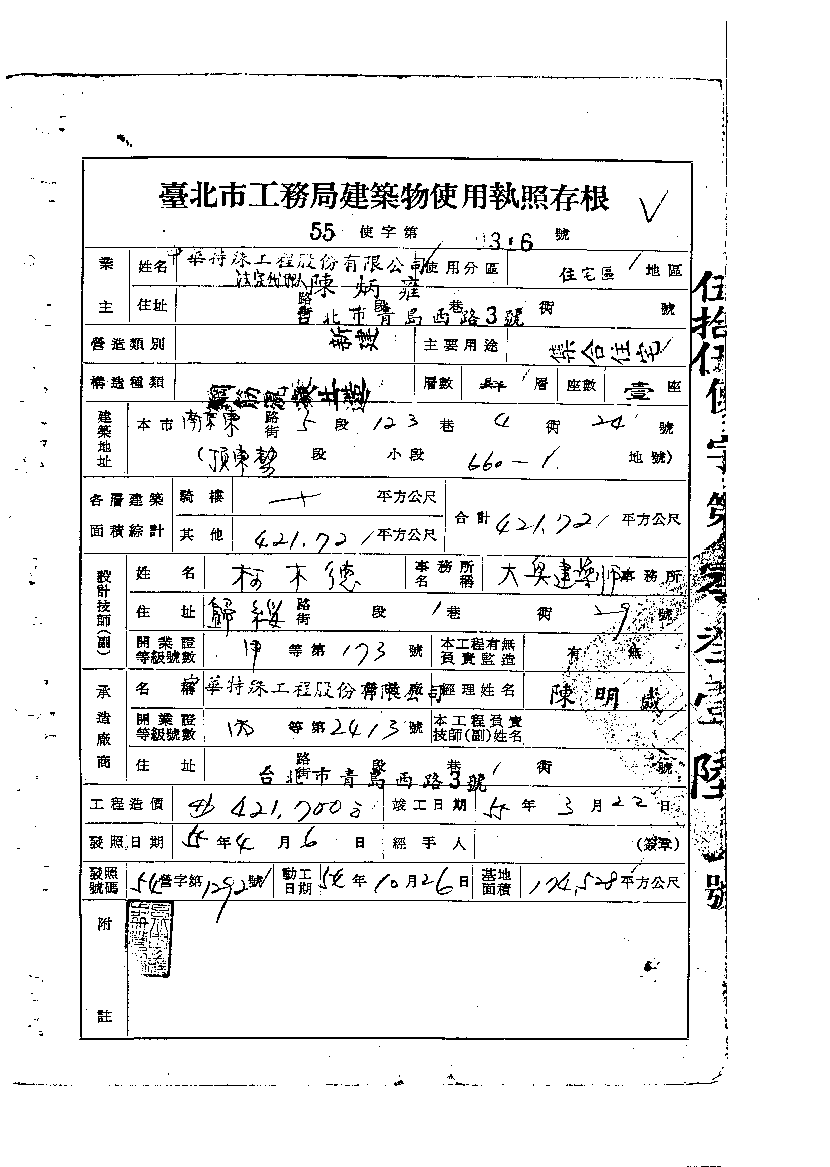 臺北市工務局建築物使用執照存根
55 使字第 0316 號
業主 姓名 中華特殊工程股份有限公司 法定代理人 陳炳雍 使用分區 住宅區 地區
住址 路街 段 巷 衖 號
台北市青島西路3號
營造類別 新建 主要用途 集合住宅
構造種類 鋼筋混凝土造 層數 層 座數 壹 座
建築地址 本市 南京東 路街 5 段 123 巷 4 衖 24 號
(頂東勢 段 小段 660-1 地號)
各層建築面積綜計 騎樓 平方公尺 合計 421.72 平方公尺
其他 421.72 平方公尺
設計技師(副) 姓名 柯木德 事務所名稱 建築師事務所
住址 歸綏 路街 段 1 巷 衖 29 號
開業證等級號數 甲 等第 173 號 本工程有無負責監造 有 無
承造廠商 名稱 中華特殊工程股份有限公司 經理姓名 陳明盛
開業證等級號數 丙 等第 2413 號 本工程負責技師(副)姓名
住址 路街 段 巷 衖 號
台北市青島西路3號
工程造價 421,700 竣工日期 55 年 3 月 22 日
發照日期 55 年 4 月 6 日 經手人 (簽章)
發照號碼 54 營字第 1292 號 動工日期 54 年 10 月 26 日 基地面積 174.528 平方公尺
附註
伍拾伍使字第零叁壹陸號